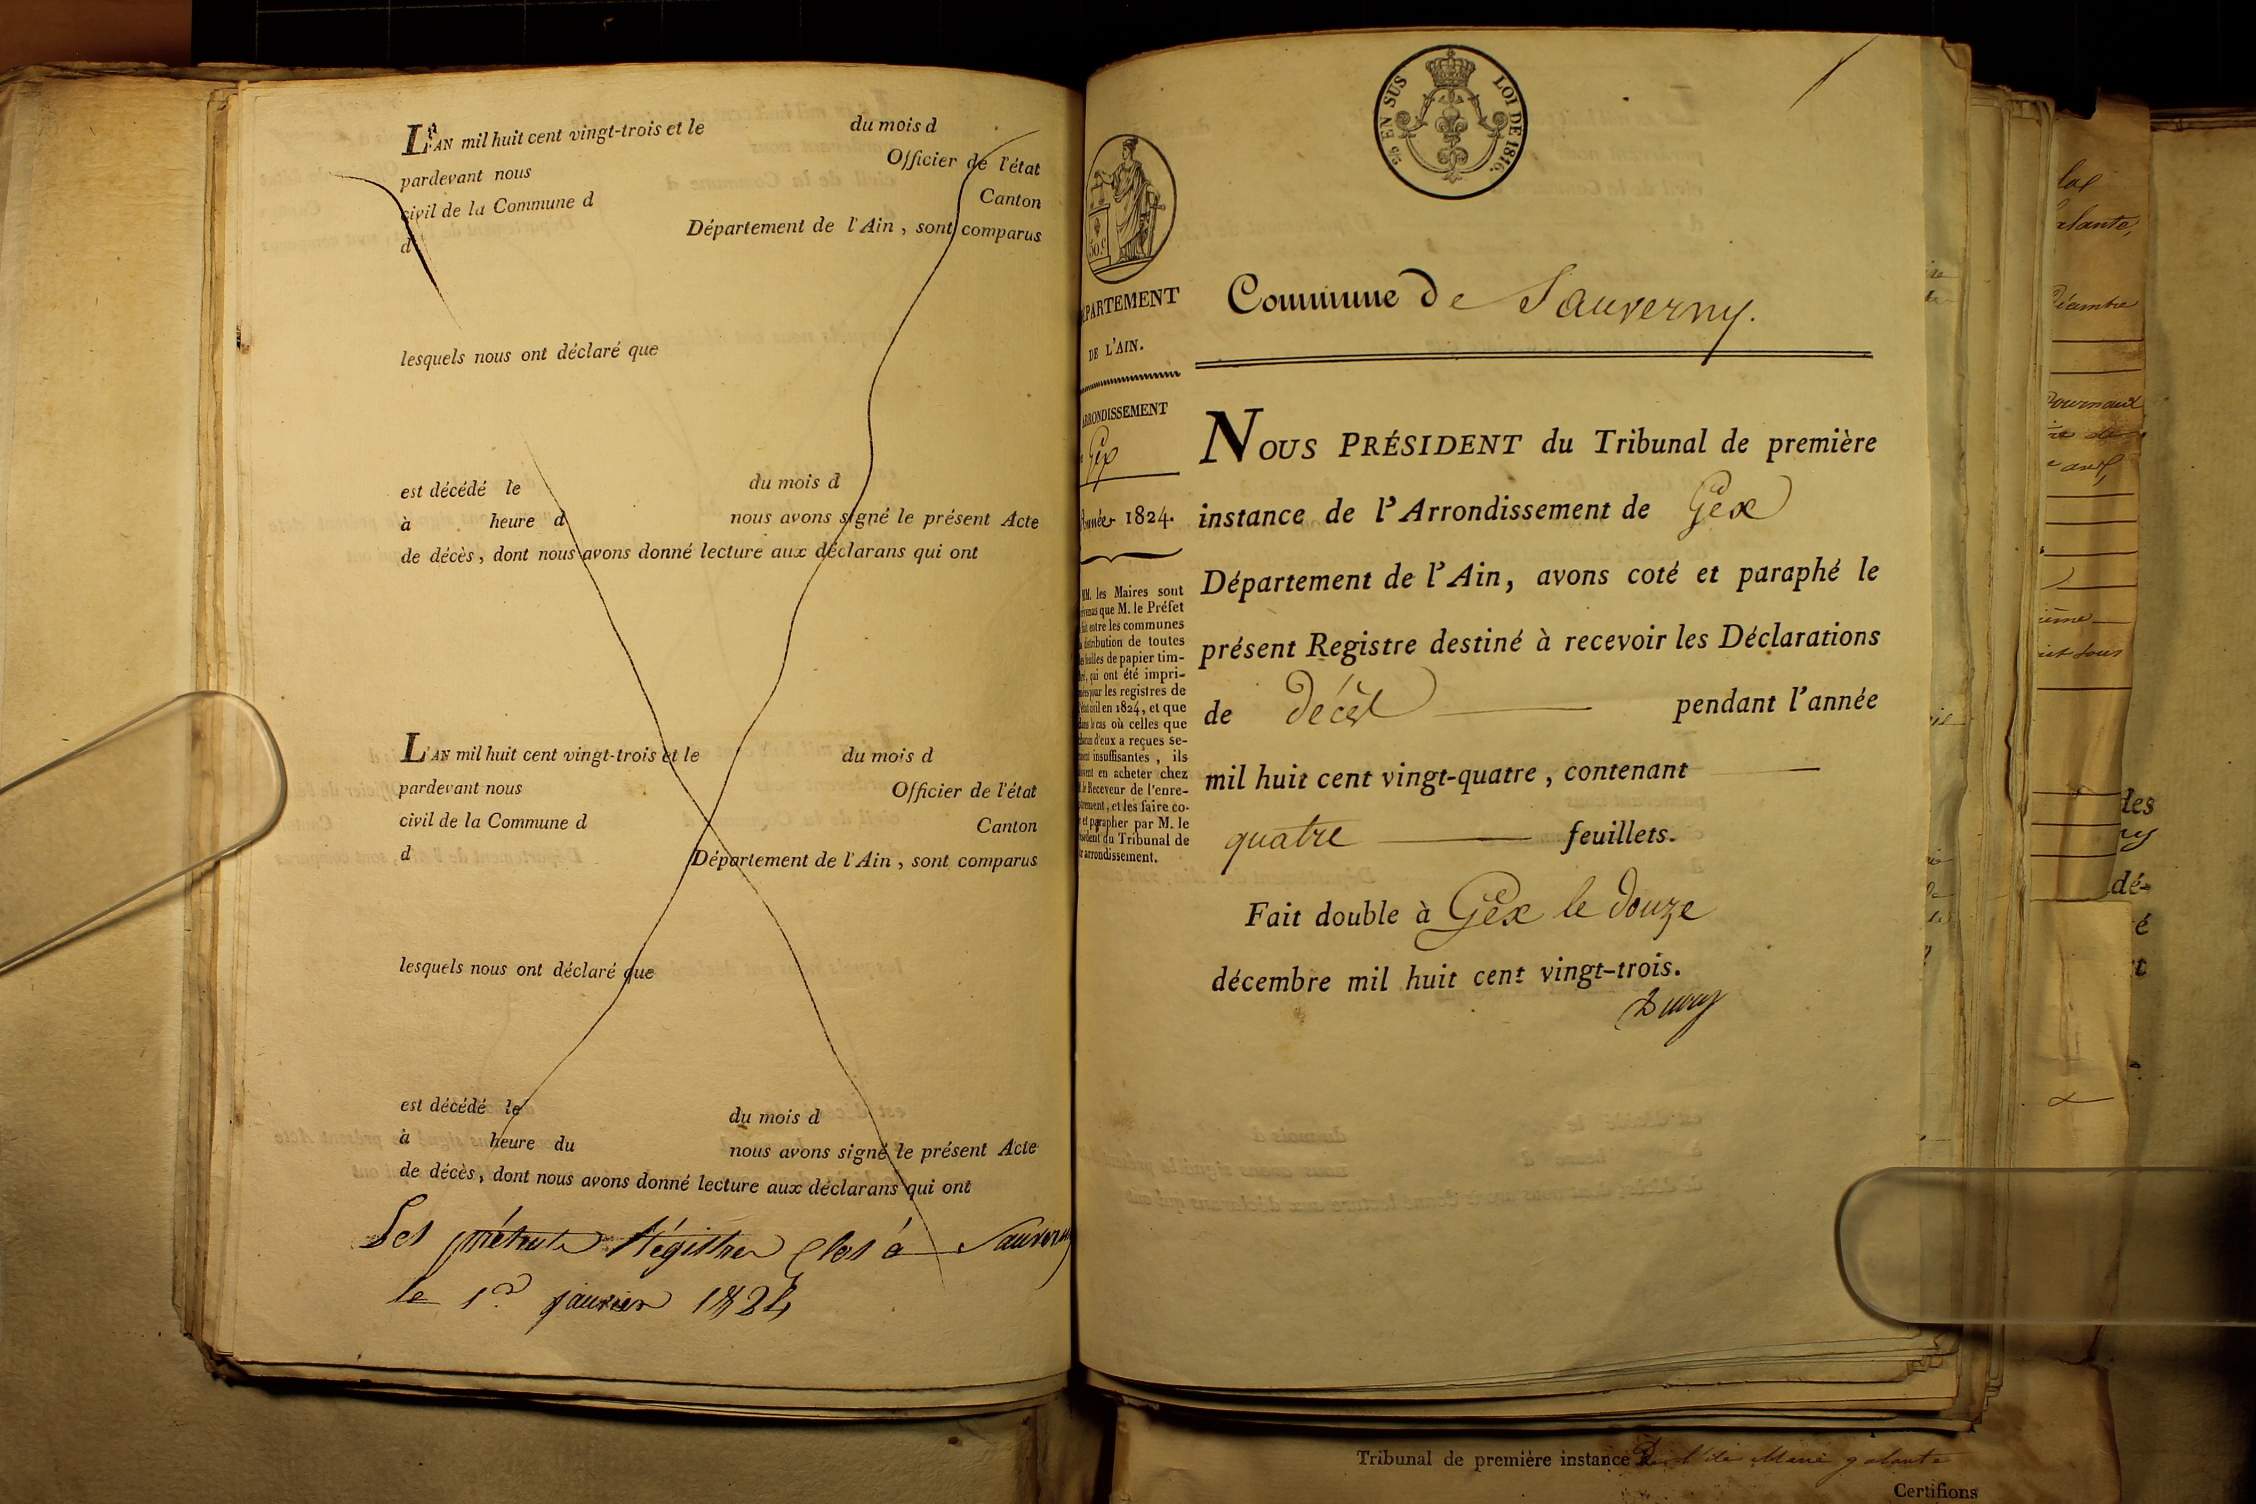 L'AN mil huit cent vingt-trois et le du mois d
pardevant nous Officier de l'état
civil de la Commune d Canton
d Département de l'Ain, sont comparus
lesquels nous ont déclaré que
est décédé le du mois d
à heure d nous avons signé le présent Acte
de décès, dont nous avons donné lecture aux déclarans qui ont
L'AN mil huit cent vingt-trois et le du mois d
pardevant nous Officier de l'état
civil de la Commune d Canton
d Département de l'Ain, sont comparus
lesquels nous ont déclaré que
est décédé le du mois d
à heure du nous avons signé le présent Acte
de décès, dont nous avons donné lecture aux déclarans qui ont
Registre Clos à Sauverny
le 1er janvier 1824
EN SUS LOI DE 1816.
50 c
DÉPARTEMENT
DE L'AIN.
ARRONDISSEMENT
Gex
Année 1824.
MM. les Maires sont
prévenus que M. le Préfet
a fait entre les communes
la distribution de toutes
les feuilles de papier tim-
bré, qui ont été impri-
mées pour les registres de
l'état civil en 1824, et que
dans le cas où celles que
chacun d'eux a reçues se-
roient insuffisantes, ils
doivent en acheter chez
M. le Receveur de l'enre-
gistrement, et les faire co-
ter et parapher par M. le
Président du Tribunal de
leur arrondissement.
Commune de Sauverny.
NOUS PRÉSIDENT du Tribunal de première
instance de l'Arrondissement de Gex
Département de l'Ain, avons coté et paraphé le
présent Registre destiné à recevoir les Déclarations
de Décès pendant l'année
mil huit cent vingt-quatre, contenant
quatre feuillets.
Fait double à Gex le Douze
décembre mil huit cent vingt-trois.
Tribunal de première instance De l'île Marie galante
Certifions